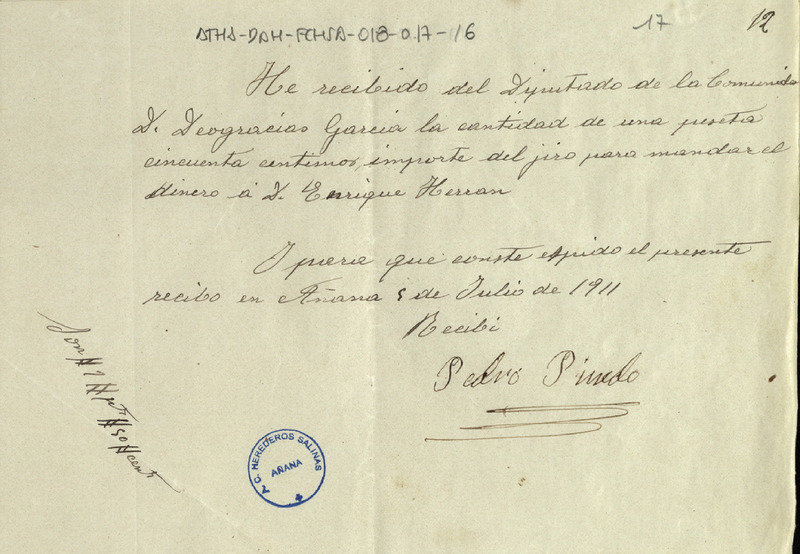 ATHA-DAH-FCHSA-018-017-16
17
12
He recibido del Diputado de la Comunida
D. Deogracias Garcia la cantidad de una peseta
cincuenta centimos, importe del jiro para mandar el
dinero á D. Enrique Herran
I para que conste espido el presente
recibo en Añana 5 de Julio de 1911
Recibi
Pedro Pinedo
Son # 1 # pts # 50 # cents
A.C. HEREDEROS SALINAS
AÑANA